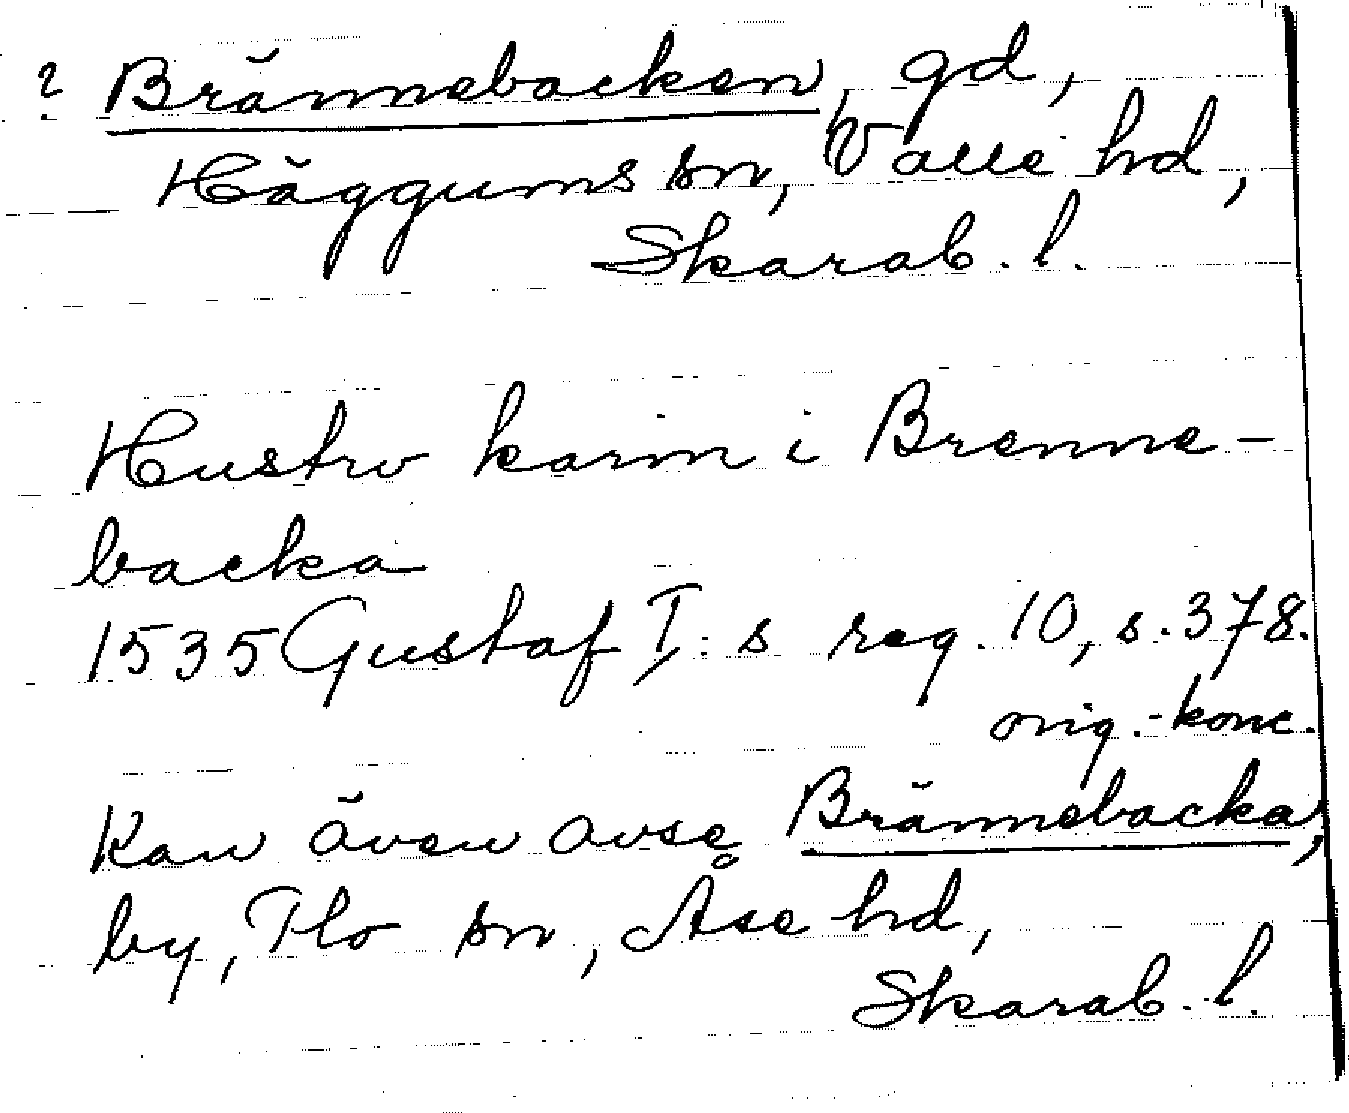 ? Brännebacken, gd,
Häggums sn, Valle hd,
Skarab. l.
Hustrv karin i Brenne-
backa
1535 Gustaf I:s reg. 10, s. 378.
orig.-konc.
Kan även avse Brännebacka,
by, Flo sn, Åse hd,
Skarab. l.